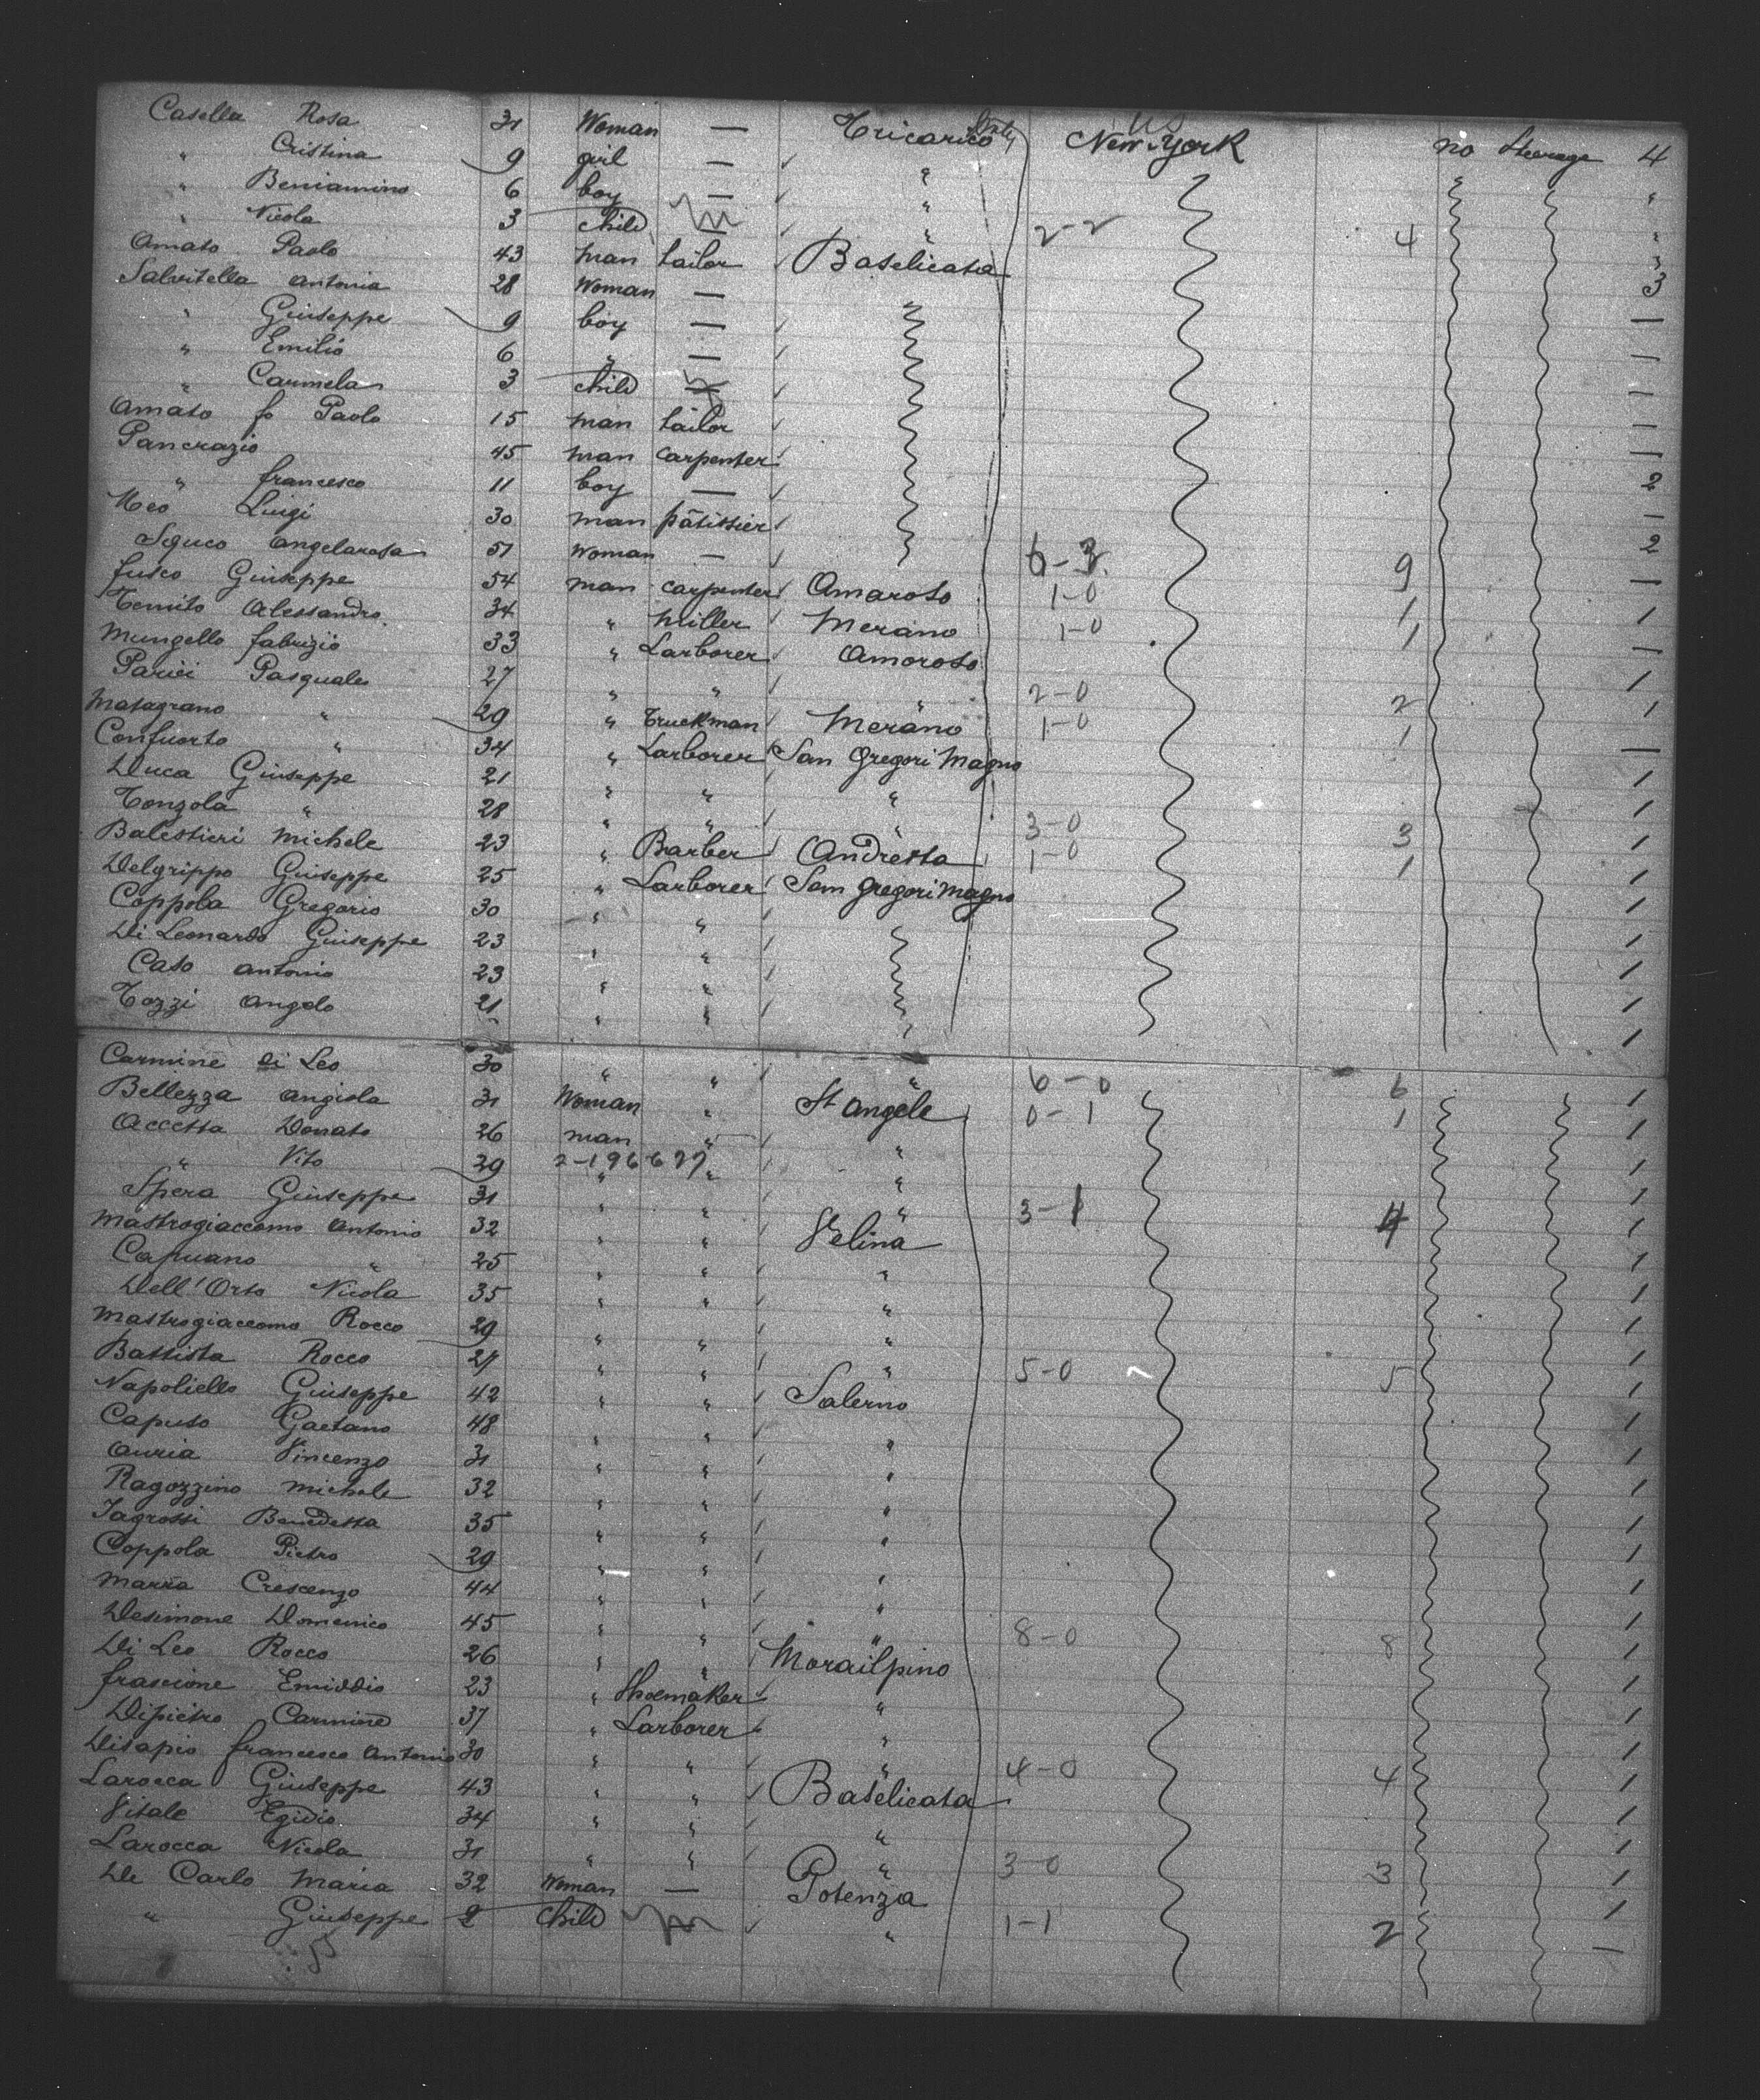 Casella Rosa 31 Woman — Tricarico Italy New York US no Steerage 4
" Cristina 9 girl — "
" Beniamino 6 boy — " "
" Nicola 3 child — " 2-2 4 "
Amato Paolo 43 man tailor Baselicata 3
Salvitella Antonia 28 Woman — 3
" Giuseppe 9 boy — —
" Emilio 6 " — —
" Carmela 3 child — —
Amato fo Paolo 15 man tailor —
Pancrazio 45 man carpenter —
" francesco 11 boy — 2
Meo Luigi 30 man pâtissier —
Squeo Angelarosa 51 Woman — 6-3 9 2
fusco Giuseppe 54 man carpenter Amaroso 1-0 1 —
Temito Alessandro 34 " Miller Merano 1-0 1 1
Mungello fabrizio 33 " Larborer Amoroso —
Parici Pasquale 27 " " " 2-0 2 1
Masagrano " 29 " Truckman Merano 1-0 1 1
Confuorto " 34 " Larborer San Gregori Magno —
Duca Giuseppe 21 " " " 1
Tonzola " 28 " " " 3-0 3 1
Balestieri Michele 23 " Barber Andretta 1-0 1 1
Delgrippo Giuseppe 25 " Larborer San Gregori Magno 1
Coppola Gregorio 30 " " 1
Di Leonardo Giuseppe 23 " " 1
Caso Antonio 23 " " 1
Tozzi Angelo 21 " " " 1
Carmine di Leo 30 " " " 6-0 6 1
Bellezza Angiola 31 Woman " St Angele 0-1 1 1
Accetta Donato 26 man " " 1
" Vito 29 2-196677 " " 1
Spera Giuseppe 31 " " " 3-1 4 1
Mastrogiaccomo Antonio 32 " " Velina 1
Capuano " 25 " " " 1
Dell'Orto Nicola 35 " " " 1
Mastrogiaccomo Rocco 29 " " " 1
Battista Rocco 27 " " " 5-0 5 1
Napoliello Giuseppe 42 " " Salerno 1
Caputo Gaetano 48 " " " 1
Auria Vincenzo 31 " " " 1
Ragozzino Michele 32 " " " 1
Iagrossi Benedetta 35 " " " 1
Coppola Pietro 29 " " " 1
Marra Crescenzo 44 " " " 1
Desimone Domenico 45 " " " 8-0 8 1
Di Leo Rocco 26 " " Morailpino 1
frascione Emiddio 23 " Shoemaker " 1
Dipietro Carmine 37 " Larborer " 1
Disapio francesco Antonio 30 " " " 4-0 4 1
Larocca Giuseppe 43 " " Baselicata 1
Vitale Egidio 34 " " " 1
Larocca Nicola 31 " " " 3-0 3 1
De Carlo Maria 32 Woman — Potenza 1
" Giuseppe 2 child — " 1-1 2 —
55